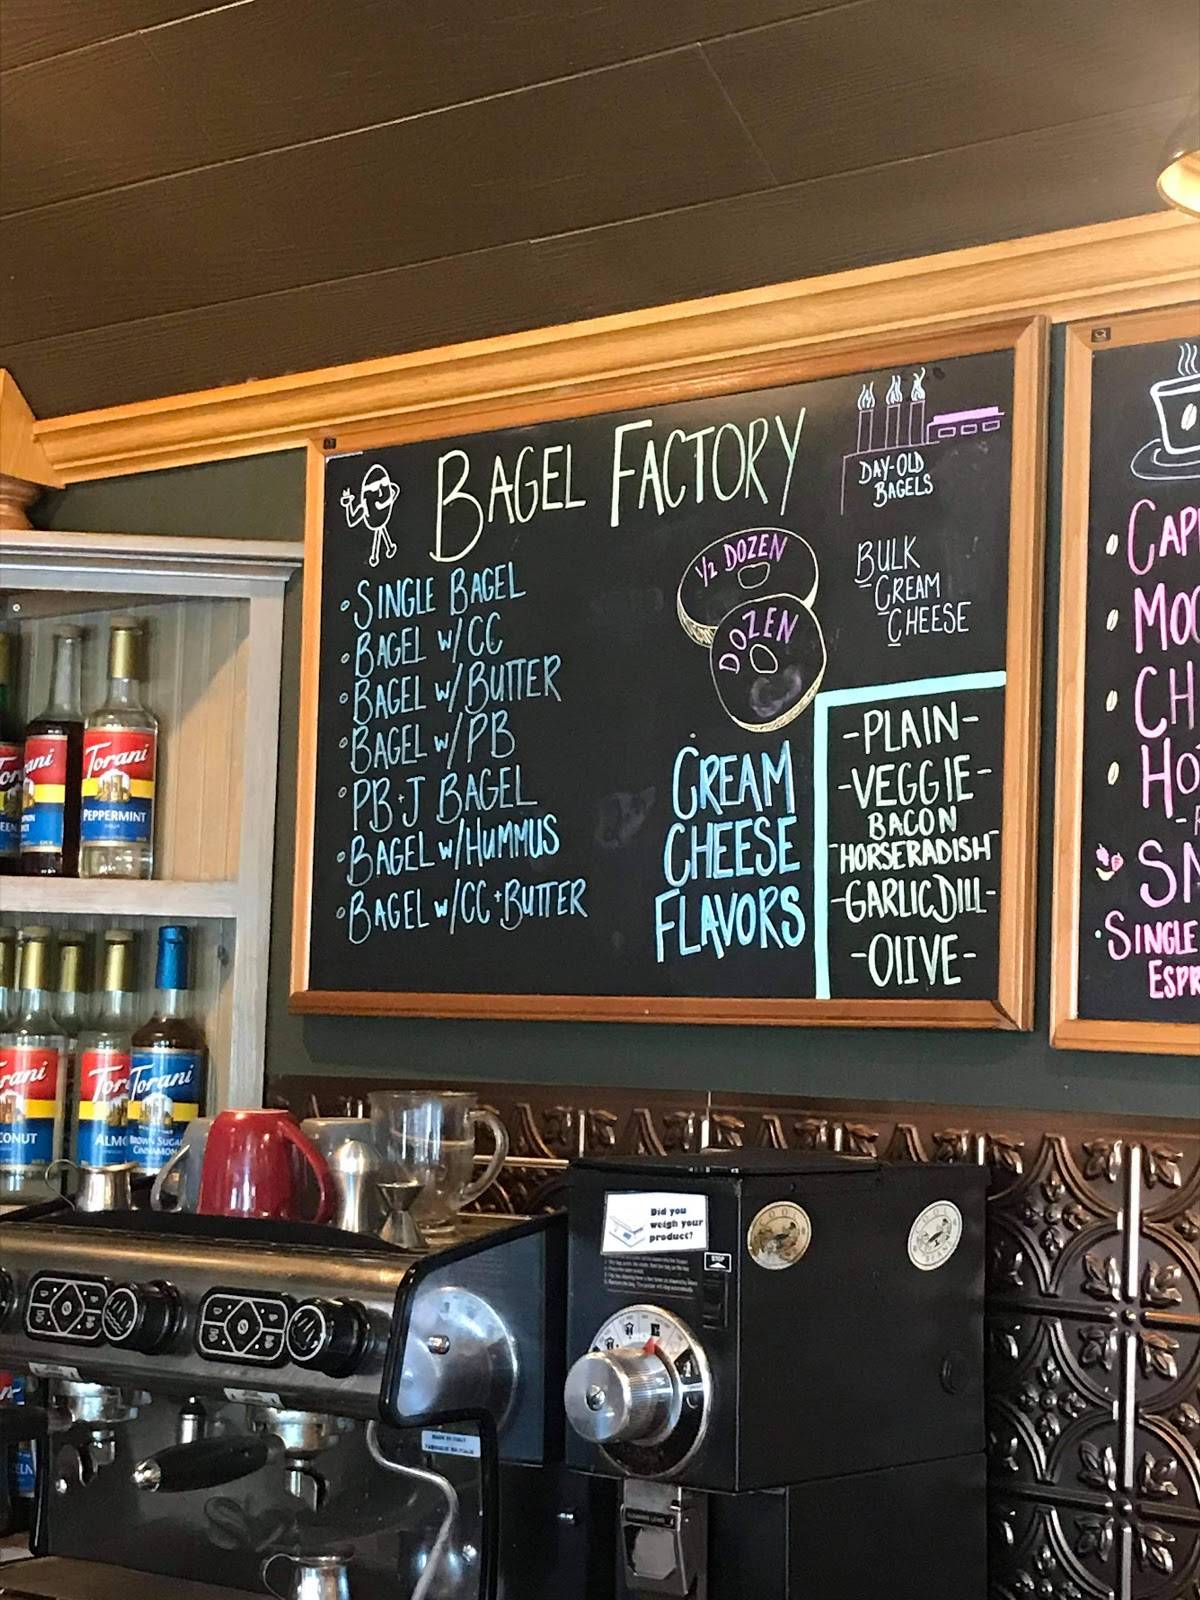 BAGEL FACTORY
SINGLE BAGEL
BAGEL W/ CC
BAGEL W/ BUTTER
BAGEL W/ PB
PB+J BAGEL
BAGEL W/ HUMMUS
BAGEL W/ CC+BUTTER
1/2 DOZEN
DOZEN
CREAM
CHEESE
FLAVORS
DAY-OLD
BAGELS
BULK
CREAM
CHEESE
-PLAIN-
-VEGGIE-
BACON
-HORSERADISH-
-GARLIC DILL-
-OLIVE-
CAP
MO
CH
HO
SINGLE
ESPR
Torani
PEPPERMINT
Torani
BROWN SUGAR
CINNAMON
Did you
weigh your
product?
STOP
MADE IN ITALY